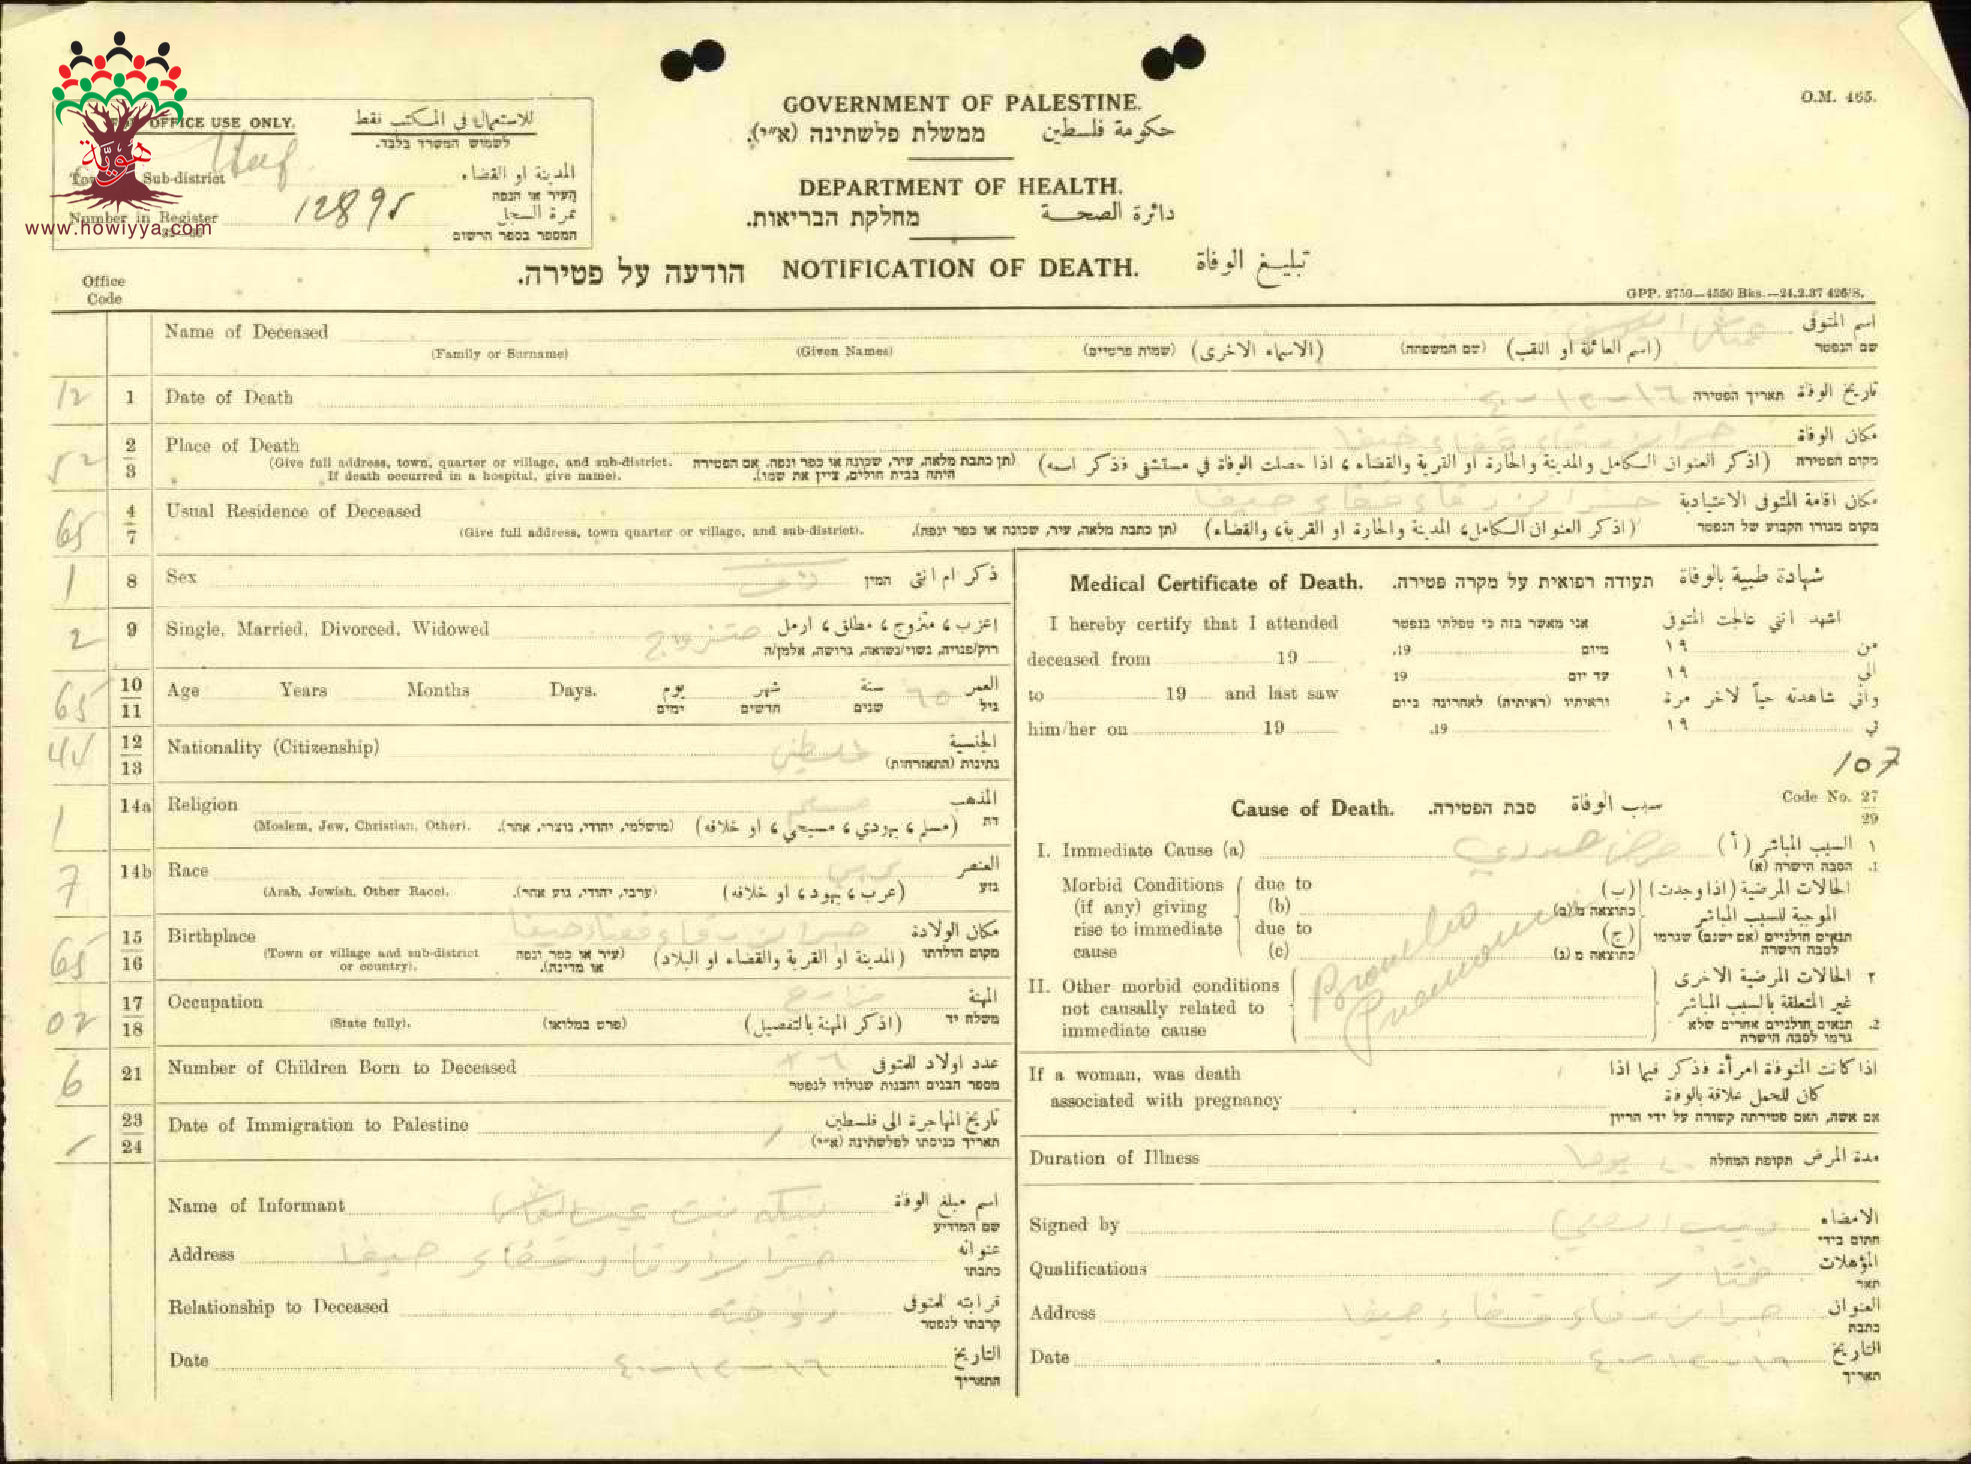 O.M. 465.
GOVERNMENT OF PALESTINE.
حكومة فلسطين ממשלת פלשתינה (א״י).
DEPARTMENT OF HEALTH.
دائرة الصحة מחלקת הבריאות.
NOTIFICATION OF DEATH. تبليغ الوفاة
הודעה על פטירה.
GPP. 2750—4550 Bks.—24.2.37 426/S.
هويّة
www.howiyya.com
OFFICE USE ONLY. للاستعمال في المكتب فقط
לשמוש המשרד בלבד.
Sub-district المدينة او القضاء
העיר או הנפה
Number in Register 12895 نمرة السجل
המספר בספר הרשום
Office Code
Name of Deceased اسم المتوفى
(Family or Surname) (Given Names) (שמות פרטיים) (الاسماء الاخرى) (שם המשפחה) (اسم العائلة او اللقب) שם הנפטר
12 1 Date of Death תאריך הפטירה تاريخ الوفاة
١٦-١٢-٤٠
52 2 3 Place of Death مكان الوفاة
(Give full address, town, quarter or village, and sub-district. (תן כתבת מלאה, עיר, שכונה או כפר ונפה. אם הפטירה (اذكر العنوان الكامل والمدينة والحارة او القرية والقضاء، اذا حصلت الوفاة في مستشفى فذكر اسمه) מקום הפטירה
If death occurred in a hospital, give name). היתה בבית חולים, ציין את שמו).
65 4 7 Usual Residence of Deceased قضاء حيفا مكان اقامة المتوفى الاعتيادية
(Give full address, town quarter or village, and sub-district). (תן כתבת מלאה, עיר, שכונה או כפר ונפה), (اذكر العنوان الكامل، المدينة والحارة او القرية، والقضاء) מקום מגורו הקבוע של הנפטר
1 8 Sex המין ذكر ام انثى
2 9 Single, Married, Divorced, Widowed متزوج اعزب، متزوج، مطلق، ارمل
רוק/פנויה, נשוי/נשואה, גרושה, אלמן/ה
65 10 11 Age Years Months Days. يوم شهر سنة ٦٥ العمر
ימים חדשים שנים גיל
44 12 13 Nationality (Citizenship) الجنسية
נתינות (התאזרחות)
1 14a Religion مسلم المذهب
(Moslem, Jew, Christian, Other). (מושלמי, יהודי, נוצרי, אחר). (مسلم، يهودي، مسيحي، او خلافه) דת
7 14b Race عربي العنصر
(Arab, Jewish, Other Race). (ערבי, יהודי, גזע אחר). (عرب، يهود، او خلافه) גזע
65 15 16 Birthplace قضاء حيفا مكان الولادة
(Town or village and sub-district or country). (עיר או כפר ונפה או מדינה). (المدينة او القرية والقضاء او البلاد) מקום הולדתו
02 17 18 Occupation المهنة
(State fully). (פרט במלואו) (اذكر المهنة بالتفصيل) משלח יד
6 21 Number of Children Born to Deceased ٦ عدد اولاد المتوفى
מספר הבנים והבנות שנולדו לנפטר
23 24 Date of Immigration to Palestine تاريخ المهاجرة الى فلسطين
תאריך כניסתו לפלשתינה (א״י)
Name of Informant بنت اسم مبلغ الوفاة
שם המודיע
Address قضاء حيفا عنوانه
כתבתו
Relationship to Deceased زوجته قرابته للمتوفى
קרבתו לנפטר
Date ١٦-١٢-٤٠ التاريخ
התאריך
Medical Certificate of Death. תעודה רפואית על מקרה פטירה. شهادة طبية بالوفاة
I hereby certify that I attended אני מאשר בזה כי טפלתי בנפטר اشهد انني عالجت المتوفى
deceased from 19 מיום 19, من ١٩
to 19 and last saw עד יום 19 الى ١٩
וראיתיו (ראיתיה) לאחרונה ביום واني شاهدته حياً لاخر مرة
him/her on 19 19. في ١٩
107
Cause of Death. סבת הפטירה. سبب الوفاة Code No. 27 29
I. Immediate Cause (a) مرض صدري ١ السبب المباشر (أ)
1. הסבה הישרה (א)
Morbid Conditions (if any) giving rise to immediate cause
due to (b)
due to (c)
Broncho Pneumonia
(ب) الحالات المرضية (اذا وجدت)
כתוצאה מ(ב) الموجبة للسبب المباشر
(ج) תנאים חולניים (אם ישנם) שגרמו
כתוצאה מ(ג) לסבה הישרה
II. Other morbid conditions not causally related to immediate cause
٢ الحالات المرضية الاخرى
غير المتعلقة بالسبب المباشر
2. תנאים חולניים אחרים שלא
גרמו לסבה הישרה
If a woman, was death associated with pregnancy
اذا كانت المتوفاة امرأة فذكر فيما اذا
كان للحمل علاقة بالوفاة
אם אשה, האם פטירתה קשורה על ידי הריון
Duration of Illness يوما תקופת המחלה مدة المرض
Signed by الامضاء
חתום בידי
Qualifications مختار المؤهلات
תאר
Address قضاء حيفا العنوان
כתבת
Date ١٦-١٢-٤٠ التاريخ
תאריך